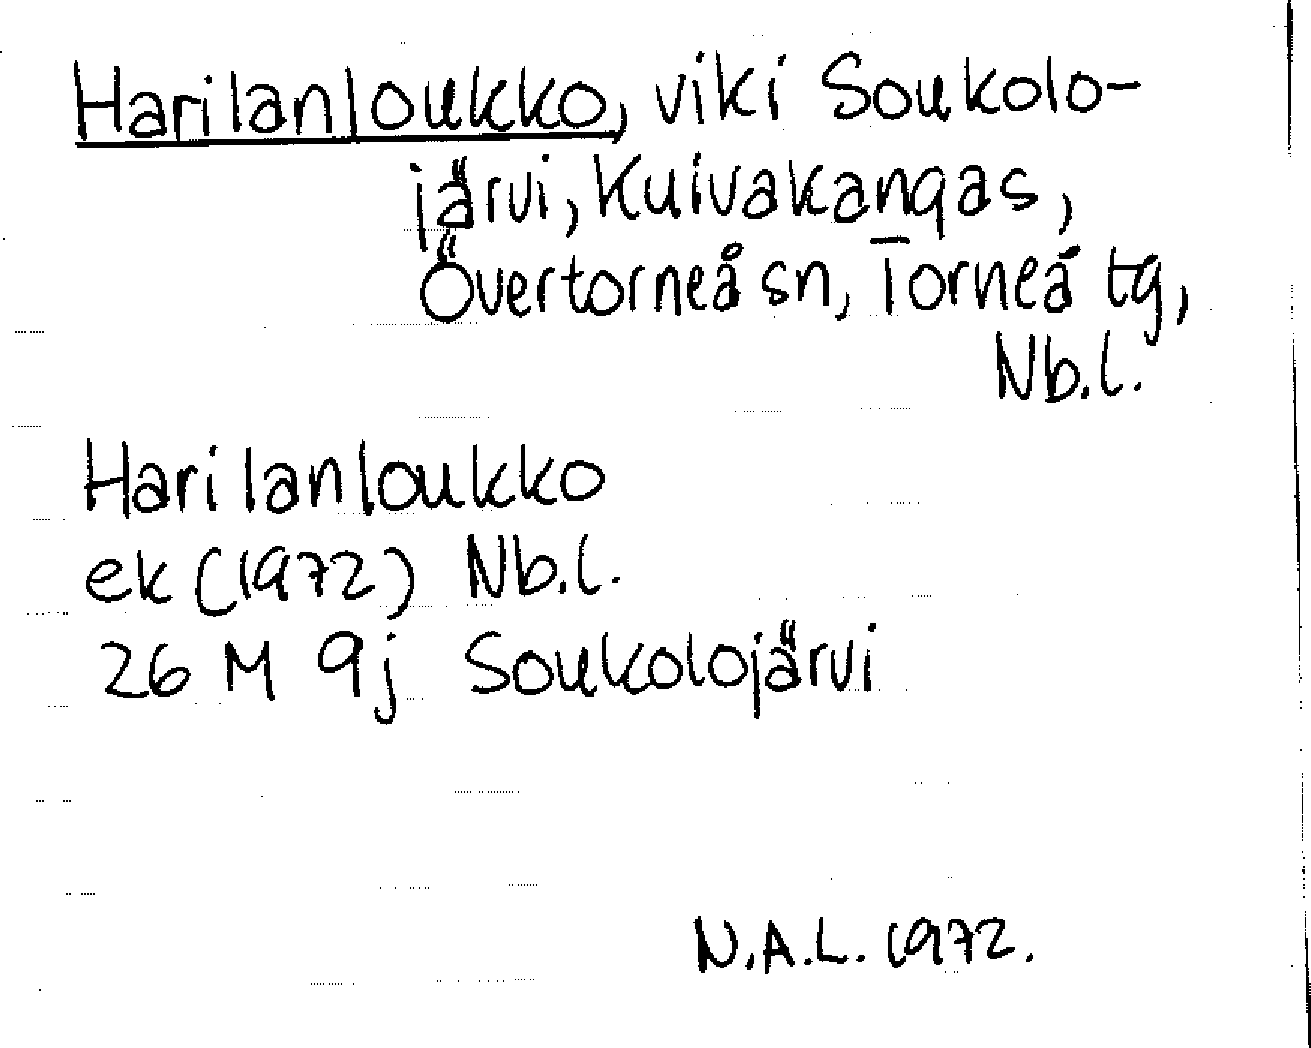 Harilanloukko, vik i Soukolo-
järvi, Kuivakangas,
Övertorneå sn, Torneå tg,
Nb.l.
Harilanloukko
ek (1972) Nb.l.
26 M 9j Soukolojärvi
N.A.L. 1972.